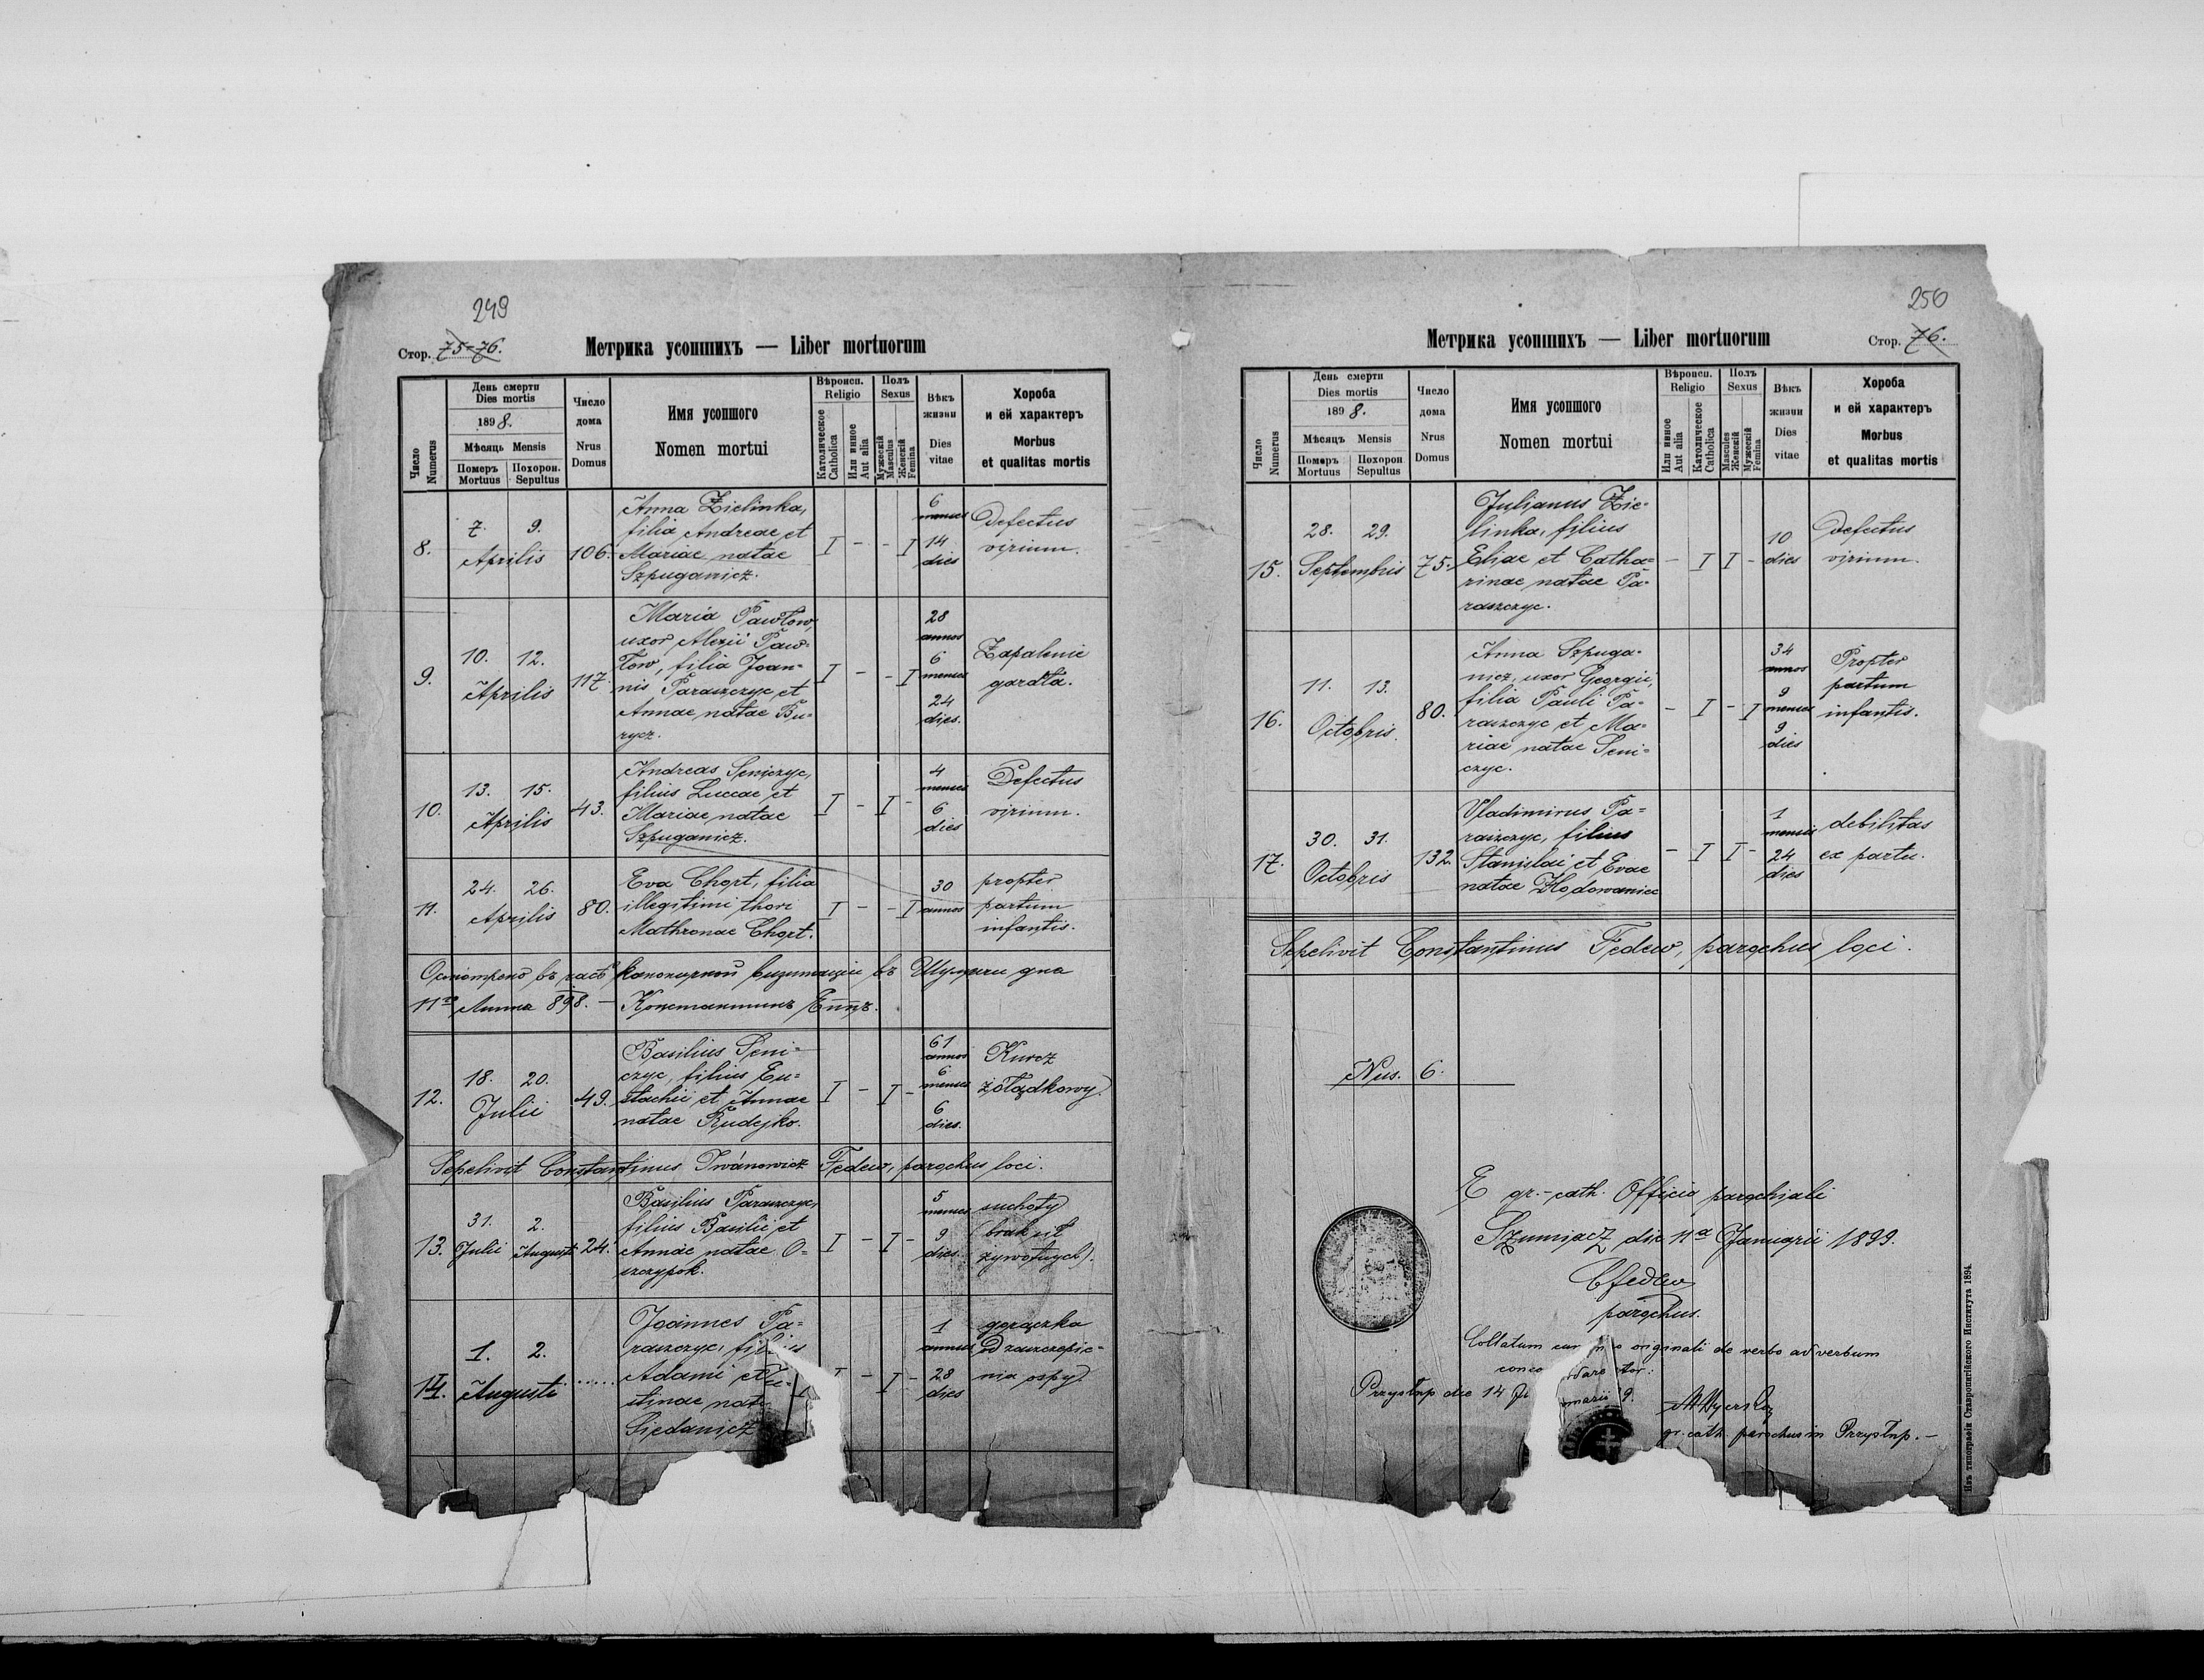 249
Стор. 75-76.
Метрика усопшихъ — Liber mortuorum
Число Numerus
День смерти
Dies mortis
1898.
Мѣсяць Mensis
Померъ Mortuus
Похорон. Sepultus
Число дома
Nrus Domus
Имя усопшого
Nomen mortui
Вѣроисп. Religio
Католическое Catholica
Или инное Aut alia
Полъ Sexus
Мужескій Masculus
Женскій Femina
Вѣкъ жизни
Dies vitae
Хороба
и ей характеръ
Morbus
et qualitas mortis
8. 7. 9. Aprilis 106.
Anna Zielinka,
filia Andreae et
Mariae natae
Szpuganicz.
I - - I
6 menses
14 dies
Defectus
virium.
9. 10. 12. Aprilis 117.
Maria Pawłow,
uxor Alexii Paw=
łow, filia Joan=
nis Paraszczyc et
Annae natae Bu=
rycz.
I - - I
28 annos
6 menses
24 dies.
Zapalenie
gardła.
10. 13. 15. Aprilis 43.
Andreas Seniczyc,
filius Luccae et
Mariae natae
Szpuganicz.
I - I -
4 menses
6 dies
Defectus
virium.
11. 24. 26. Aprilis 80.
Eva Chort, filia
illegitimi thori
Mathronae Chort.
I - - I
30 annos
propter
partum
infantis.
въ часѣ каноничной визитаціи въ дня
11го 898. — Константинъ Еппъ.
12. 18. 20. Julii 49.
Basilius Seni=
czyc, filius Eu=
stachii et Annae
natae Rudejko.
I - I -
61 annos
6 menses
6 dies.
Kurcz
żołądkowy.
Sepelivit Constantinus Iwanowicz Fedew, parochus loci.
13. 31. Julii 2. Augusti 24.
Basilius Paraszczyc,
filius Basilii et
Annae natae O=
szczypok.
I - I -
5 menses
9 dies.
suchoty
(brak sił
żywotnych).
14. 1. 2. Augusti ......
Joannes Pa=
raszczyc, filius
Adami et
stinae nat
I - I -
1 annus
28 dies
gorączka
z zaszczepie=
nia ospy.
250
Стор. 76.
Метрика усопшихъ — Liber mortuorum
Число Numerus
День смерти
Dies mortis
1898.
Мѣсяцъ Mensis
Померъ Mortuus
Похорон Sepultus
Число дома
Nrus Domus
Имя усопшого
Nomen mortui
Вѣроисп. Religio
Или инное Aut alia
Католическое Catholica
Полъ Sexus
Masculus Женскій
Мужескій Femina
Вѣкъ жизни
Dies vitae
Хороба
и ей характеръ
Morbus
et qualitas mortis
15. 28. 29. Septembris 75.
Julianus Zie=
linka, filius
Eliae et Catha=
rinae natae Pa=
raszczyc.
- I I -
10 dies
Defectus
virium.
16. 11. 13. Octobris. 80.
Anna Szpuga=
nicz, uxor Georgii,
filia Pauli Pa=
raszczyc et Ma=
riae natae Seni=
czyc.
- I - I
34 annos
9 menses
9 dies
Propter
partum
infantis.
17. 30. 31. Octobris 132.
Vladimirus Pa=
raszczyc, filius
Stanislai et Evae
natae Hodowaniec
- I I -
1 mensis
24 dies
debilitas
ex partu.
Sepelivit Constantinus Fedew, parochus loci.
Nus. 6.
E gr.-cath. Officio parochiali
Szumiacz die 11a Januarii 1899.
CFedew
parochus.
Collatum cum originali de verbo ad verbum
Przysłup die 14
gr. cath. parochus in Przysłup. —
Изъ типографіи Ставропигійского Института 1894.